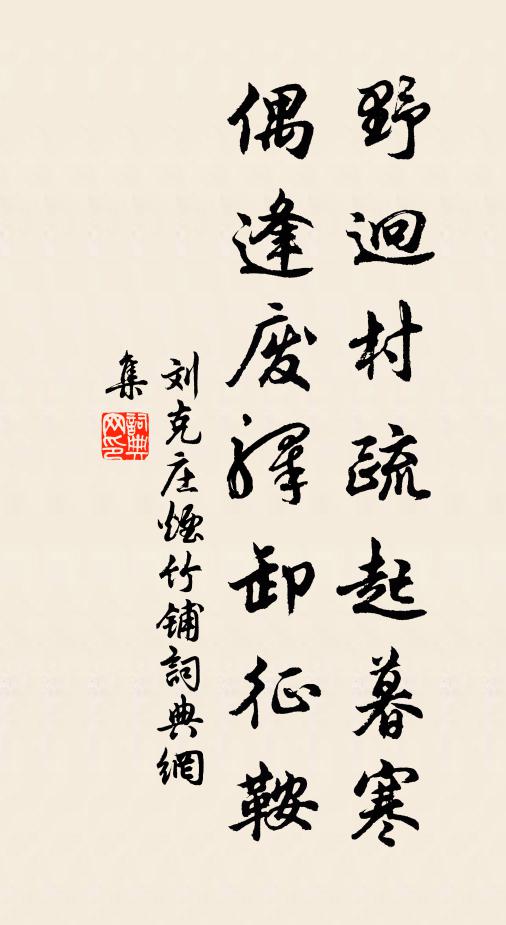 野迥村疏起暮寒
偶逢废驿卸征鞍
刘克庄烟竹铺詞典網
集
詞典
网印